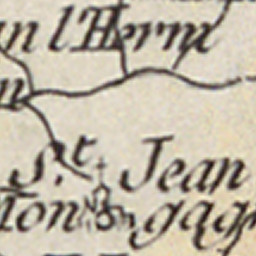 an l'Herm
n
St. Jean
Ton gag